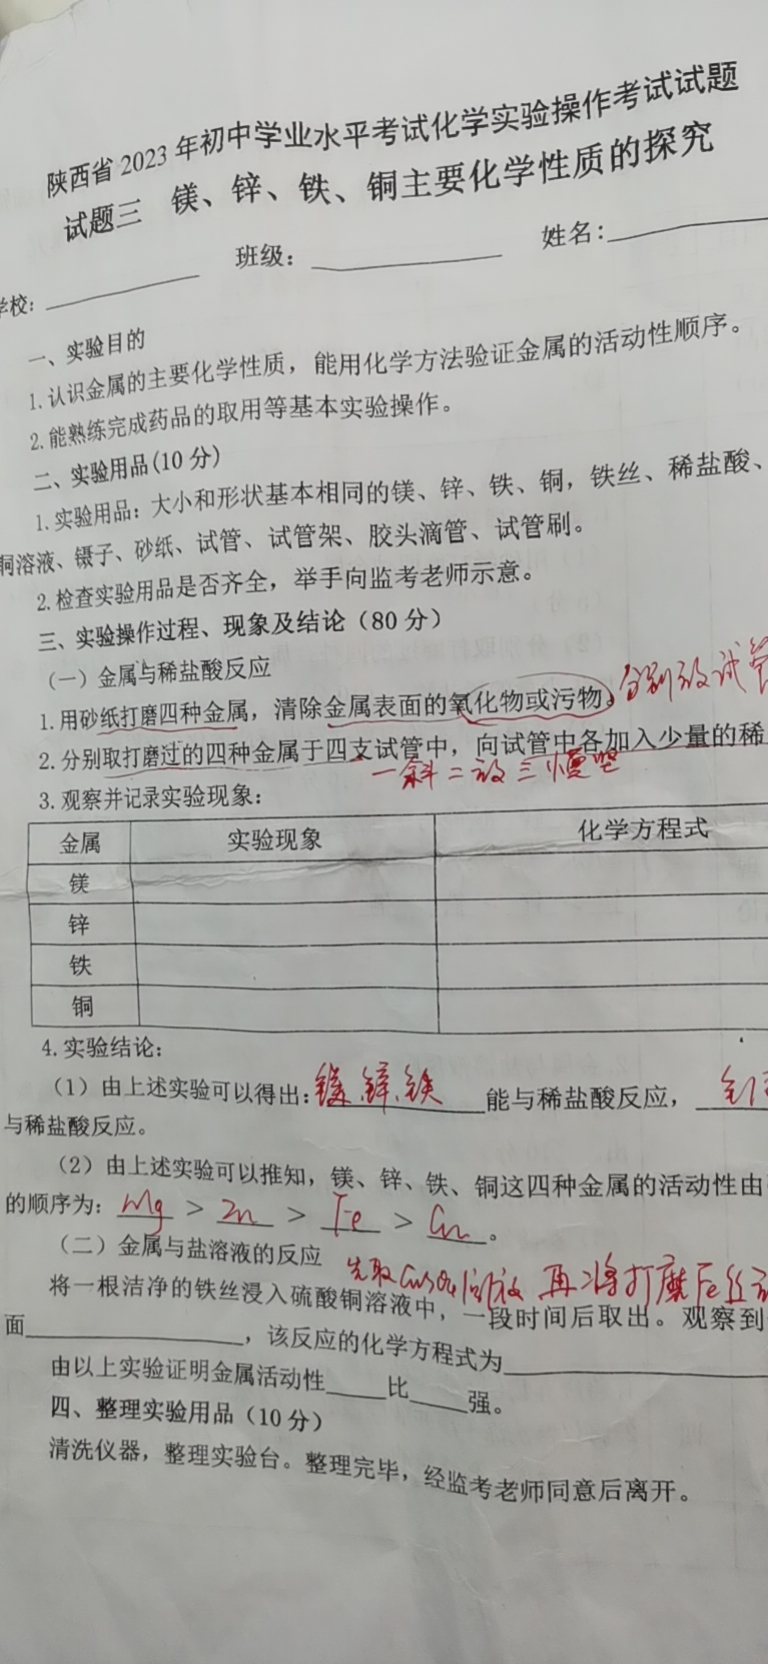 陕西省2023年初中学业水平考试化学实验操作考试试题
试题三 镁、锌、铁、铜主要化学性质的探究
学校： 班级： 姓名：
一、实验目的
1.认识金属的主要化学性质，能用化学方法验证金属的活动性顺序。
2.能熟练完成药品的取用等基本实验操作。
二、实验用品(10分)
1.实验用品：大小和形状基本相同的镁、锌、铁、铜，铁丝、稀盐酸、
铜溶液、镊子、砂纸、试管、试管架、胶头滴管、试管刷。
2.检查实验用品是否齐全，举手向监考老师示意。
三、实验操作过程、现象及结论（80分）
（一）金属与稀盐酸反应
1.用砂纸打磨四种金属，清除金属表面的氧化物或污物。分别放试管
2.分别取打磨过的四种金属于四支试管中，向试管中各加入少量的稀
一斜二放三慢竖
3.观察并记录实验现象：
金属 实验现象 化学方程式
镁
锌
铁
铜
4.实验结论：
（1）由上述实验可以得出：镁、锌、铁能与稀盐酸反应，
与稀盐酸反应。
（2）由上述实验可以推知，镁、锌、铁、铜这四种金属的活动性由
的顺序为：Mg > Zn > Fe > Cu。
（二）金属与盐溶液的反应
先取CuSO4溶液 再将打磨Fe丝
将一根洁净的铁丝浸入硫酸铜溶液中，一段时间后取出。观察到
面 ，该反应的化学方程式为
由以上实验证明金属活动性 比 强。
四、整理实验用品（10分）
清洗仪器，整理实验台。整理完毕，经监考老师同意后离开。